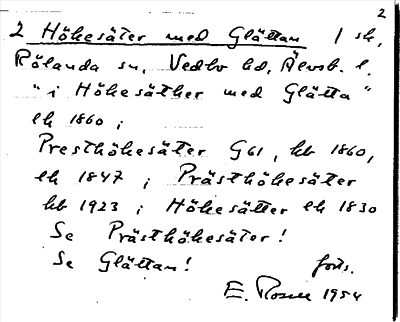 2
2 Hökesäter med Glättan 1 sk,
Rölanda sn, Vedbo hd, Älvsb. l.
"i Hökesäther med Glätta"
lh 1860;
Presthökesäter G61, kb 1860,
lh 1847; Prästhökesäter
kb 1923; Hökesätter lh 1830
Se Prästhökesäter!
Se Glättan! forts.
E. Rosell 1954